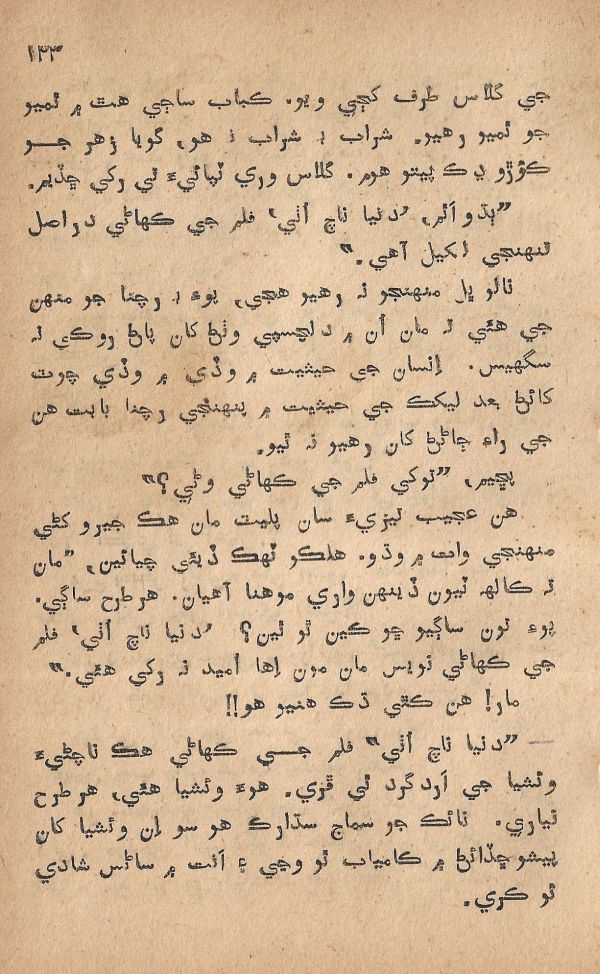 ۱۳۳
جي گلاس طرف کڄي ويو. ڪباب ساڄي هٿ ۾ ئميو
جو ئميو رهيو. شراب ۽ شراب نہ هو، گويا زهر جو
ڪؤڙو ڍڪ پيتو هوم. گلاس وري ٽپائيءَ تي رکي ڇڏيم.
”ٻڌو اٿم، ’دنيا ناچ اُٺي‘ فلم جي ڪهاڻي دراصل
تنهنجي لکيل آهي.“
نالو ڀل منهنجو نہ رهيو هجي، پوءِ ۽ رچنا جو منهن
جي هئي تہ مان اُن ۾ دلچسپي وٺڻ کان پاڻ روڪي نہ
سگهيس. اِنسان جي حيثيت ۾ وڏي ۾ وڏي چوٽ
کائڻ بعد ليکڪ جي حيثيت ۾ پنهنجي رچنا بابت هن
جي راءِ ڄاڻڻ کان رهيو نہ ٿيو.
پڇيم، ”توکي فلم جي ڪهاڻي وڻي؟“
هن عجيب تيزيءَ سان پليٽ مان هڪ جيرو کڻي
منهنجي وات ۾ وڌو. هلڪو ٽهڪ ڏيئي چيائين، ”مان
تہ ڪالهہ ٽيون ڏينهن واري موهنا آهيان. هر طرح ساڳي.
پوءِ تون ساڳيو ڇو ڪين ٿو ٿين؟ ’دنيا ناچ اُٺي‘ فلم
جي ڪهاڻي نويس مان مون اِها اُميد نہ رکي هئي.“
مار! هن ڪٿي ڌڪ هنيو هو!!
”دنيا ناچ اُٺي“ فلم جي ڪهاڻي هڪ ناچڻيءَ
وئشيا جي اَردگرد ٿي ڦري. هوءَ وئشيا هئي، هر طرح
تياري. نائڪ جو سماج سڌارڪ هو سو اِن وئشيا کان
پيشو ڇڏائڻ ۾ ڪامياب ٿو وڃي ۽ اَنت ۾ ساڻس شادي
ٿو ڪري.